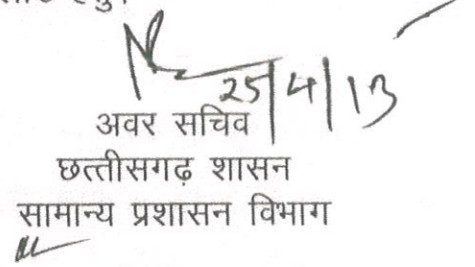 25/4/13
अवर सचिव
छत्तीसगढ़ शासन
सामान्य प्रशासन विभाग